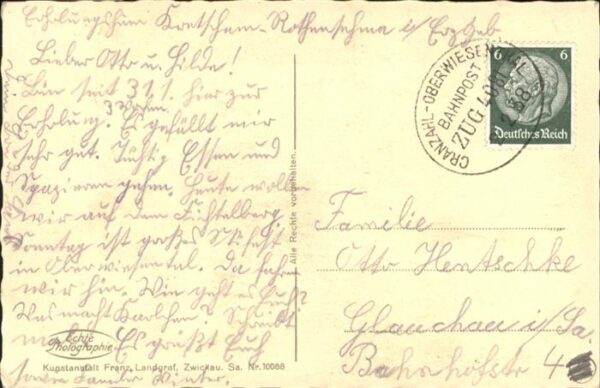 Erholungsheim Kretscham-Rothensehma i/ Erzgeb
Lieber Otto u. Hilde!
Bin seit 31.1. hier zur
Erholung. 3 Wochen. Es gefällt mir
sehr gut. Tüchtig Essen und
Spazieren gehen. Heute wollen
wir auf den Fichtelberg.
Sonntag ist großes Skifest
in Oberwiesental. Da fahren
wir hin. Wie geht es Euch?
Was macht Karlchen? Schreibt
mal. Es grüßt Euch
Winter.
Echte
Photographie
Kunstanstalt Franz Landgraf, Zwickau. Sa. Nr. 10088
Alle Rechte vorbehalten.
CRANZAHL-OBERWIESENTHAL
BAHNPOST
ZUG
2.38
6 6
Deutsches Reich
Familie
Otto Hentschke
Glauchau i/Sa.
Bahnhofstr 4